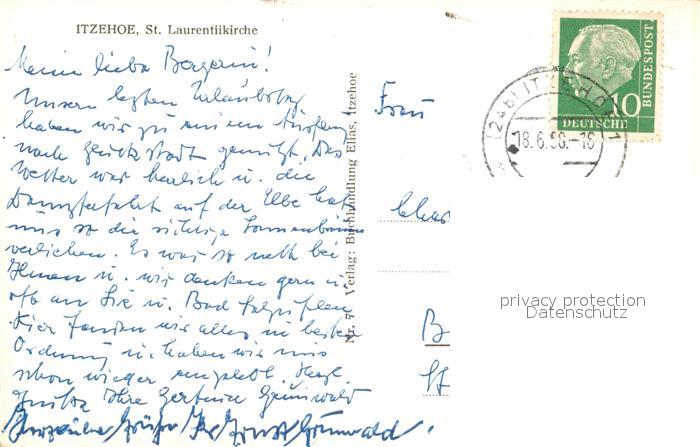 ITZEHOE, St. Laurentiikirche
Meine liebe Bergerin!
Unseren letzten Urlaubstag
haben wir zu einem Ausflug
nach Glückstadt genutzt. Das
Wetter war herrlich u. die
Dampferfahrt auf der Elbe hat
uns so die richtige Sonnenbräune
verliehen. Es war so nett bei
Ihnen u. wir denken gern u.
oft an Sie u. Bad Salzuflen.
Hier fanden wir alles in bester
Ordnung u. haben wir uns
schon wieder eingelebt. Herzl.
Grüße Ihre Gertrud Grünwald
Herzliche Grüße Ihr Ernst Grünwald
Nr. 7 Verlag: Buchhandlung Elias, Itzehoe
Frau
B
(24b) ITZEHOE 1
18.6.56.-16
10
DEUTSCHE
BUNDESPOST
privacy protection
Datenschutz